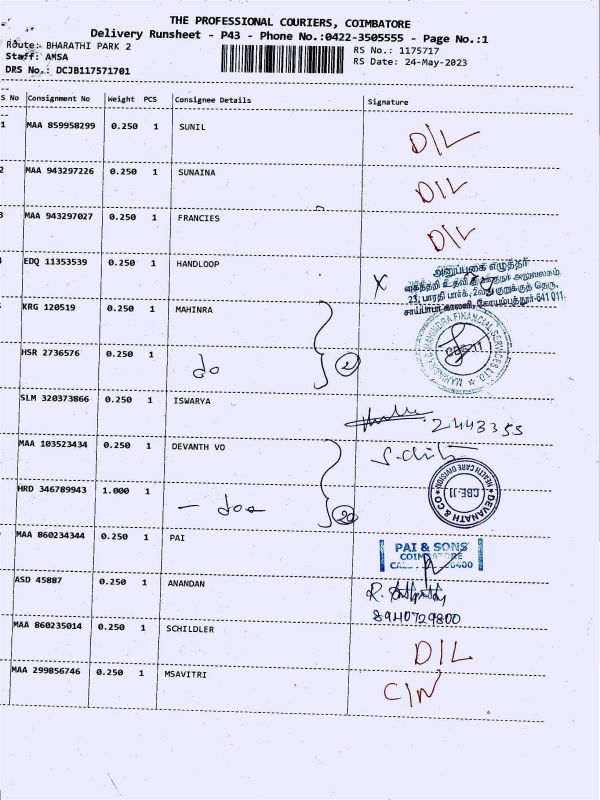 THE PROFESSIONAL COURIERS, COIMBATORE
Delivery Runsheet - P43 - Phone No.:0422-3505555 - Page No.:1
Route: BHARATHI PARK 2
RS No.: 1175717
Staff: AMSA
RS Date: 24-May-2023
DRS No.: DCJB117571701
S No Consignment No Weight PCS Consignee Details Signature
1 MAA 859958299 0.250 1 SUNIL D/L
2 MAA 943297226 0.250 1 SUNAINA D/L
3 MAA 943297027 0.250 1 FRANCIES D/L
EDQ 11353539 0.250 1 HANDLOOP X
அனுப்புகை எழுத்தர்
கைத்தறி உதவி அலுவலகம்
23, பாரதி பார்க், 2வது குறுக்குத் தெரு,
சாய்பாபா காலனி, கோயம்புத்தூர்-641 011.
KRG 120519 0.250 1 MAHINRA
MAHINDRA & MAHINDRA FINANCIAL SERVICES LTD
CBE-11
HSR 2736576 0.250 1 do 2
SLM 320373866 0.250 1 ISWARYA 2443355
MAA 103523434 0.250 1 DEVANTH VO
DEVANATH & CO
HEALTH CARE DIVISION
CBE-11
HRD 346789943 1.000 1
MAA 860234344 0.250 1 PAI
PAI & SONS
COIMBATORE
ASD 45887 0.250 1 ANANDAN
8940729800
MAA 860235014 0.250 1 SCHILDLER D/L
MAA 299856746 0.250 1 MSAVITRI C/N